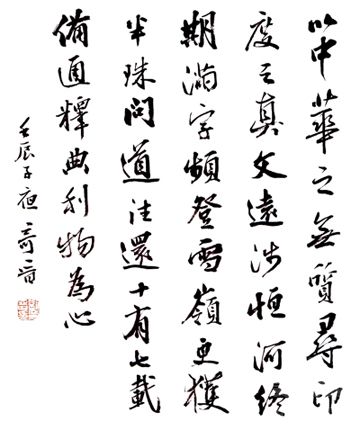 以中華之無質尋印
度之真文遠涉恒河終
期滿字頻登雪嶺更獲
半珠問道往還十有七載
備通釋典利物為心
壬辰子夜